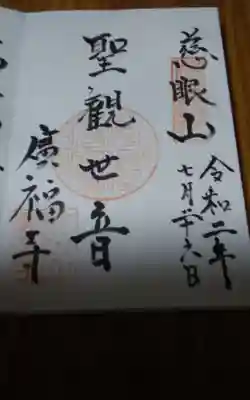 慈眼山
令和二年
七月廿六日
聖觀世音
廣福寺